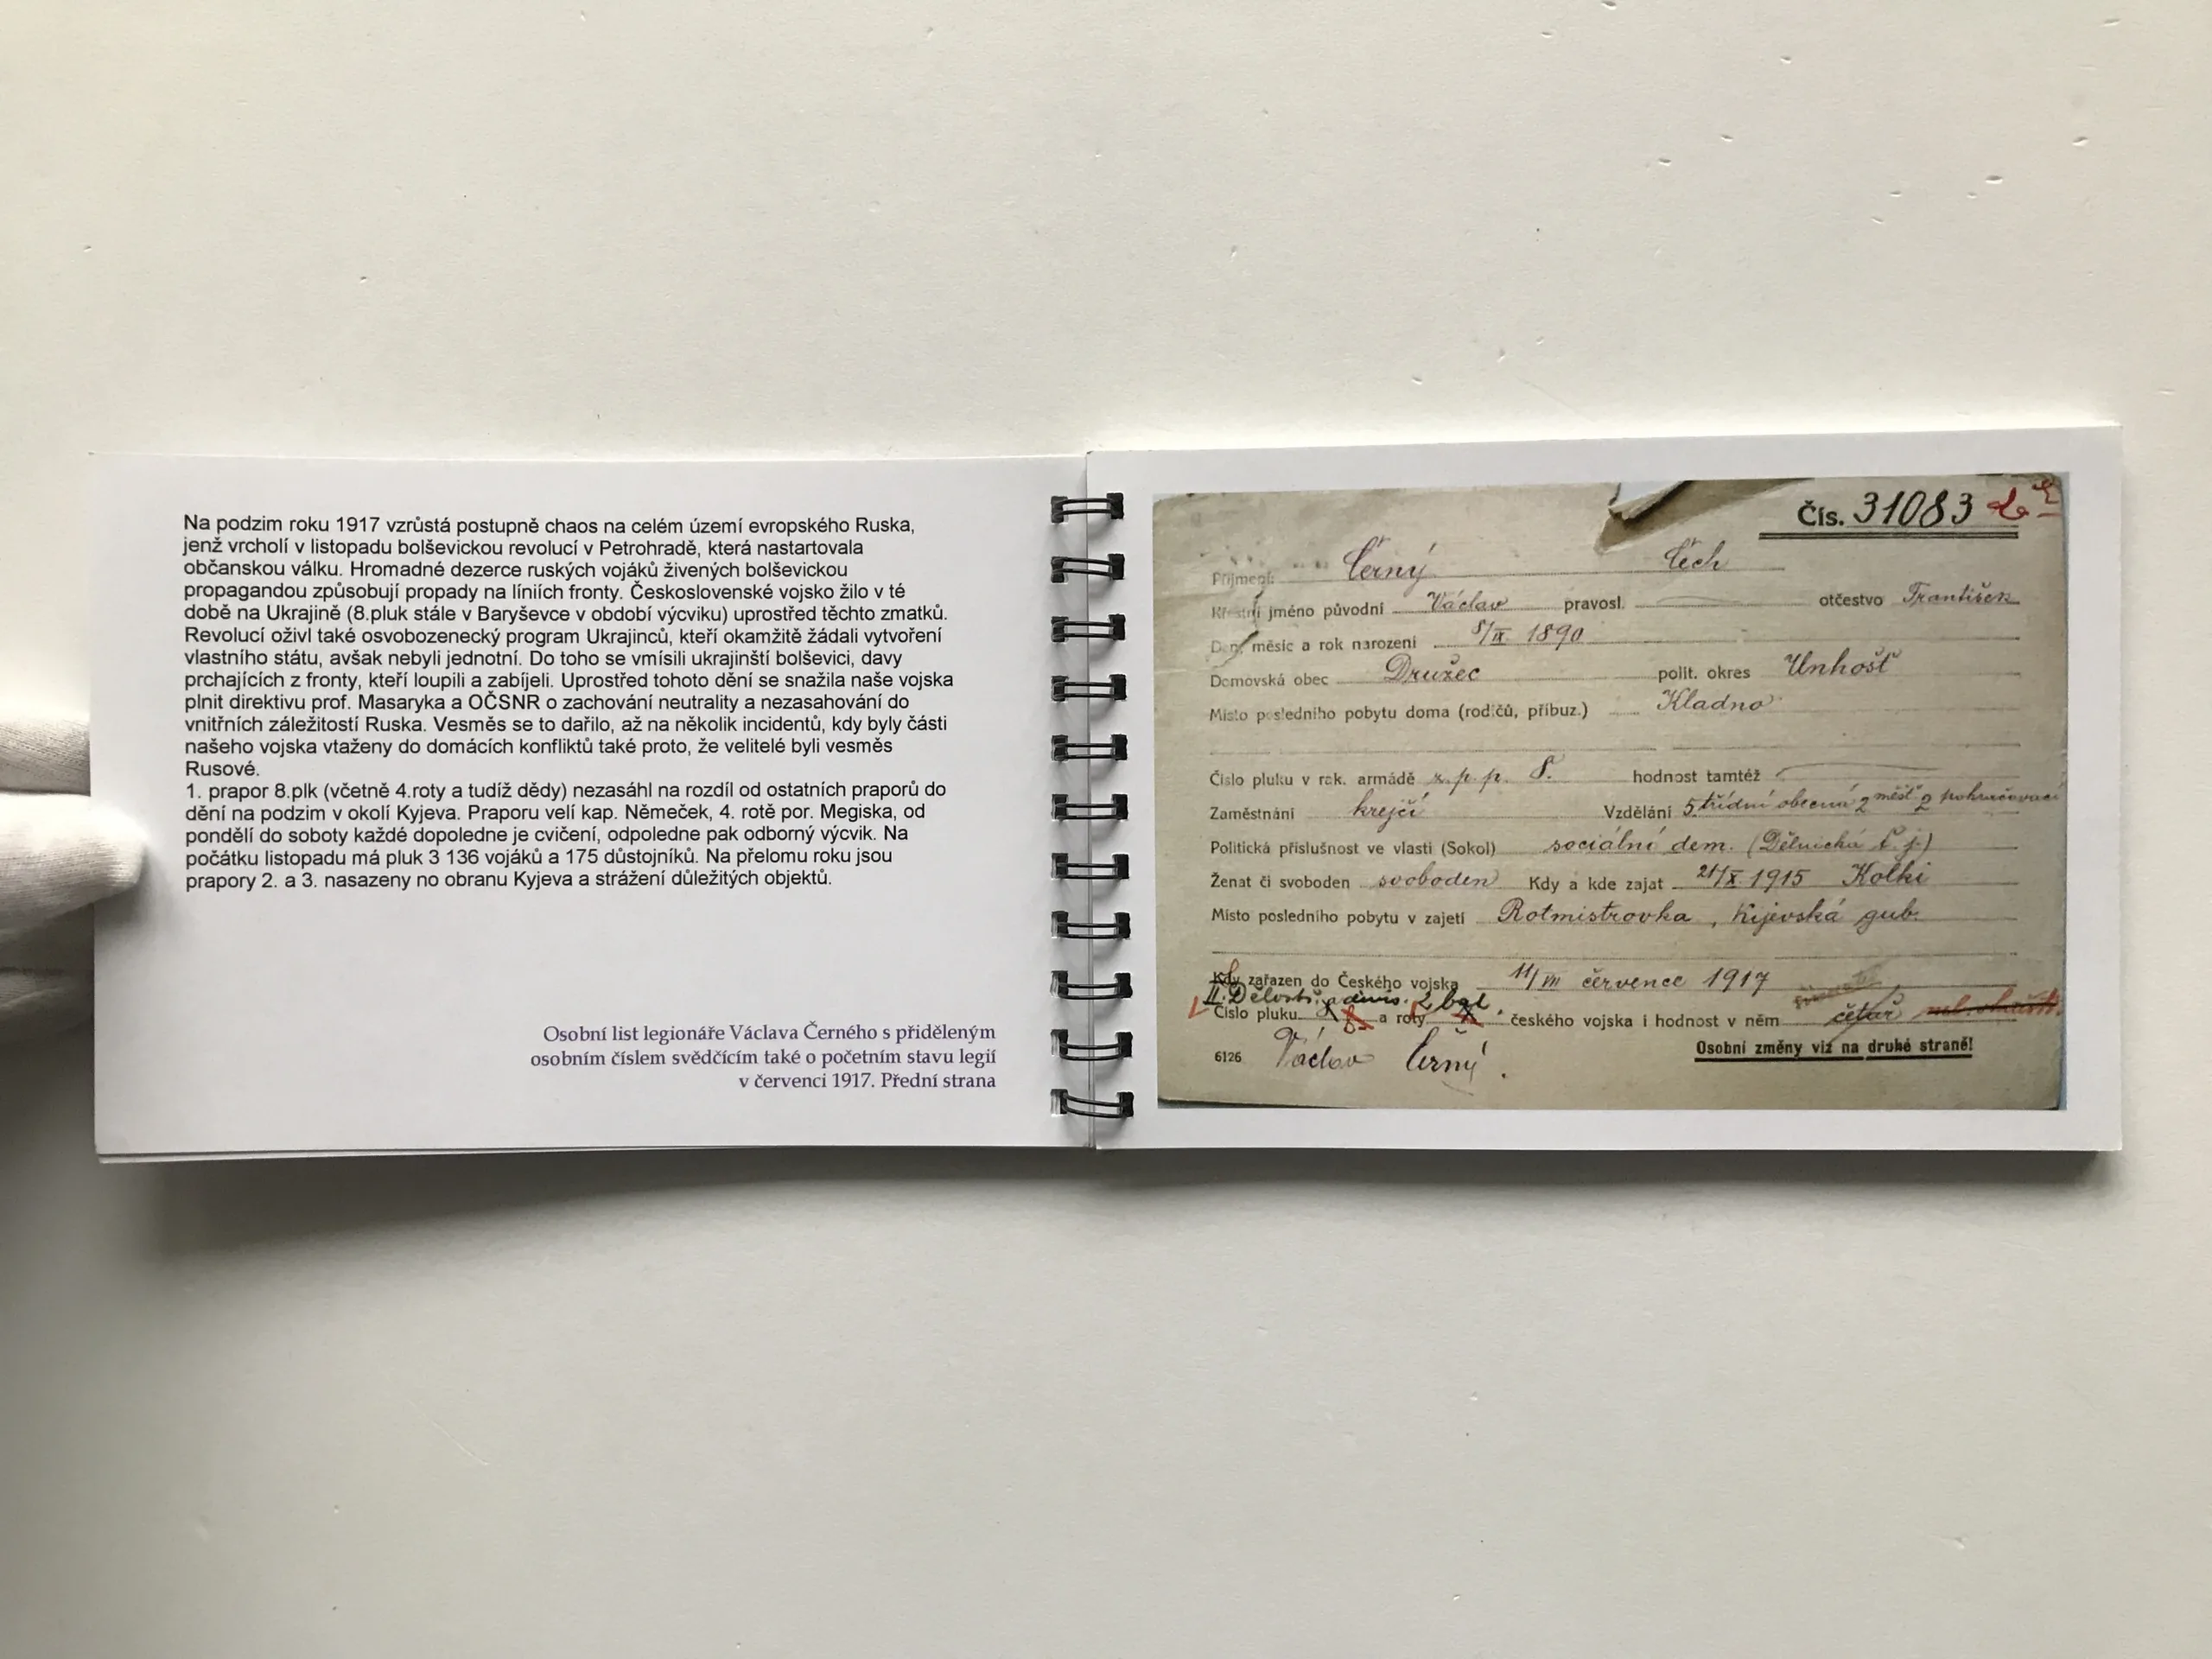 Na podzim roku 1917 vzrůstá postupně chaos na celém území evropského Ruska,
jenž vrcholí v listopadu bolševickou revolucí v Petrohradě, která nastartovala
občanskou válku. Hromadné dezerce ruských vojáků živených bolševickou
propagandou způsobují propady na líniích fronty. Československé vojsko žilo v té
době na Ukrajině (8.pluk stále v Baryševce v období výcviku) uprostřed těchto zmatků.
Revolucí oživl také osvobozenecký program Ukrajinců, kteří okamžitě žádali vytvoření
vlastního státu, avšak nebyli jednotní. Do toho se vmísili ukrajinští bolševici, davy
prchajících z fronty, kteří loupili a zabíjeli. Uprostřed tohoto dění se snažila naše vojska
plnit direktivu prof. Masaryka a OČSNR o zachování neutrality a nezasahování do
vnitřních záležitostí Ruska. Vesměs se to dařilo, až na několik incidentů, kdy byly části
našeho vojska vtaženy do domácích konfliktů také proto, že velitelé byli vesměs
Rusové.
1. prapor 8.plk (včetně 4.roty a tudíž dědy) nezasáhl na rozdíl od ostatních praporů do
dění na podzim v okolí Kyjeva. Praporu velí kap. Němeček, 4. rotě por. Megiska, od
pondělí do soboty každé dopoledne je cvičení, odpoledne pak odborný výcvik. Na
počátku listopadu má pluk 3 136 vojáků a 175 důstojníků. Na přelomu roku jsou
prapory 2. a 3. nasazeny no obranu Kyjeva a strážení důležitých objektů.
Osobní list legionáře Václava Černého s přiděleným
osobním číslem svědčícím také o početním stavu legií
v červenci 1917. Přední strana
Čís. 31083
Příjmení: Černý Čech
Křestní jméno původní Václav pravosl. otčestvo František
Den, měsíc a rok narození 8/IX 1890
Domovská obec Družec polit. okres Unhošť
Místo posledního pobytu doma (rodičů, příbuz.) Kladno
Číslo pluku v rak. armádě z.p.p. 8. hodnost tamtéž
Zaměstnání krejčí Vzdělání 5 třídní obecná 2 měšť 2 pokračovací
Politická příslušnost ve vlasti (Sokol) sociální dem. (Dělnická t. j.)
Ženat či svoboden svoboden Kdy a kde zajat 21/X 1915 Kolki
Místo posledního pobytu v zajetí Rotmistrovka, Kijevská gub.
Kdy zařazen do Českého vojska 11/VII července 1917
Číslo pluku a roty českého vojska i hodnost v něm četař
6126 Václav Černý. Osobní změny viz na druhé straně!